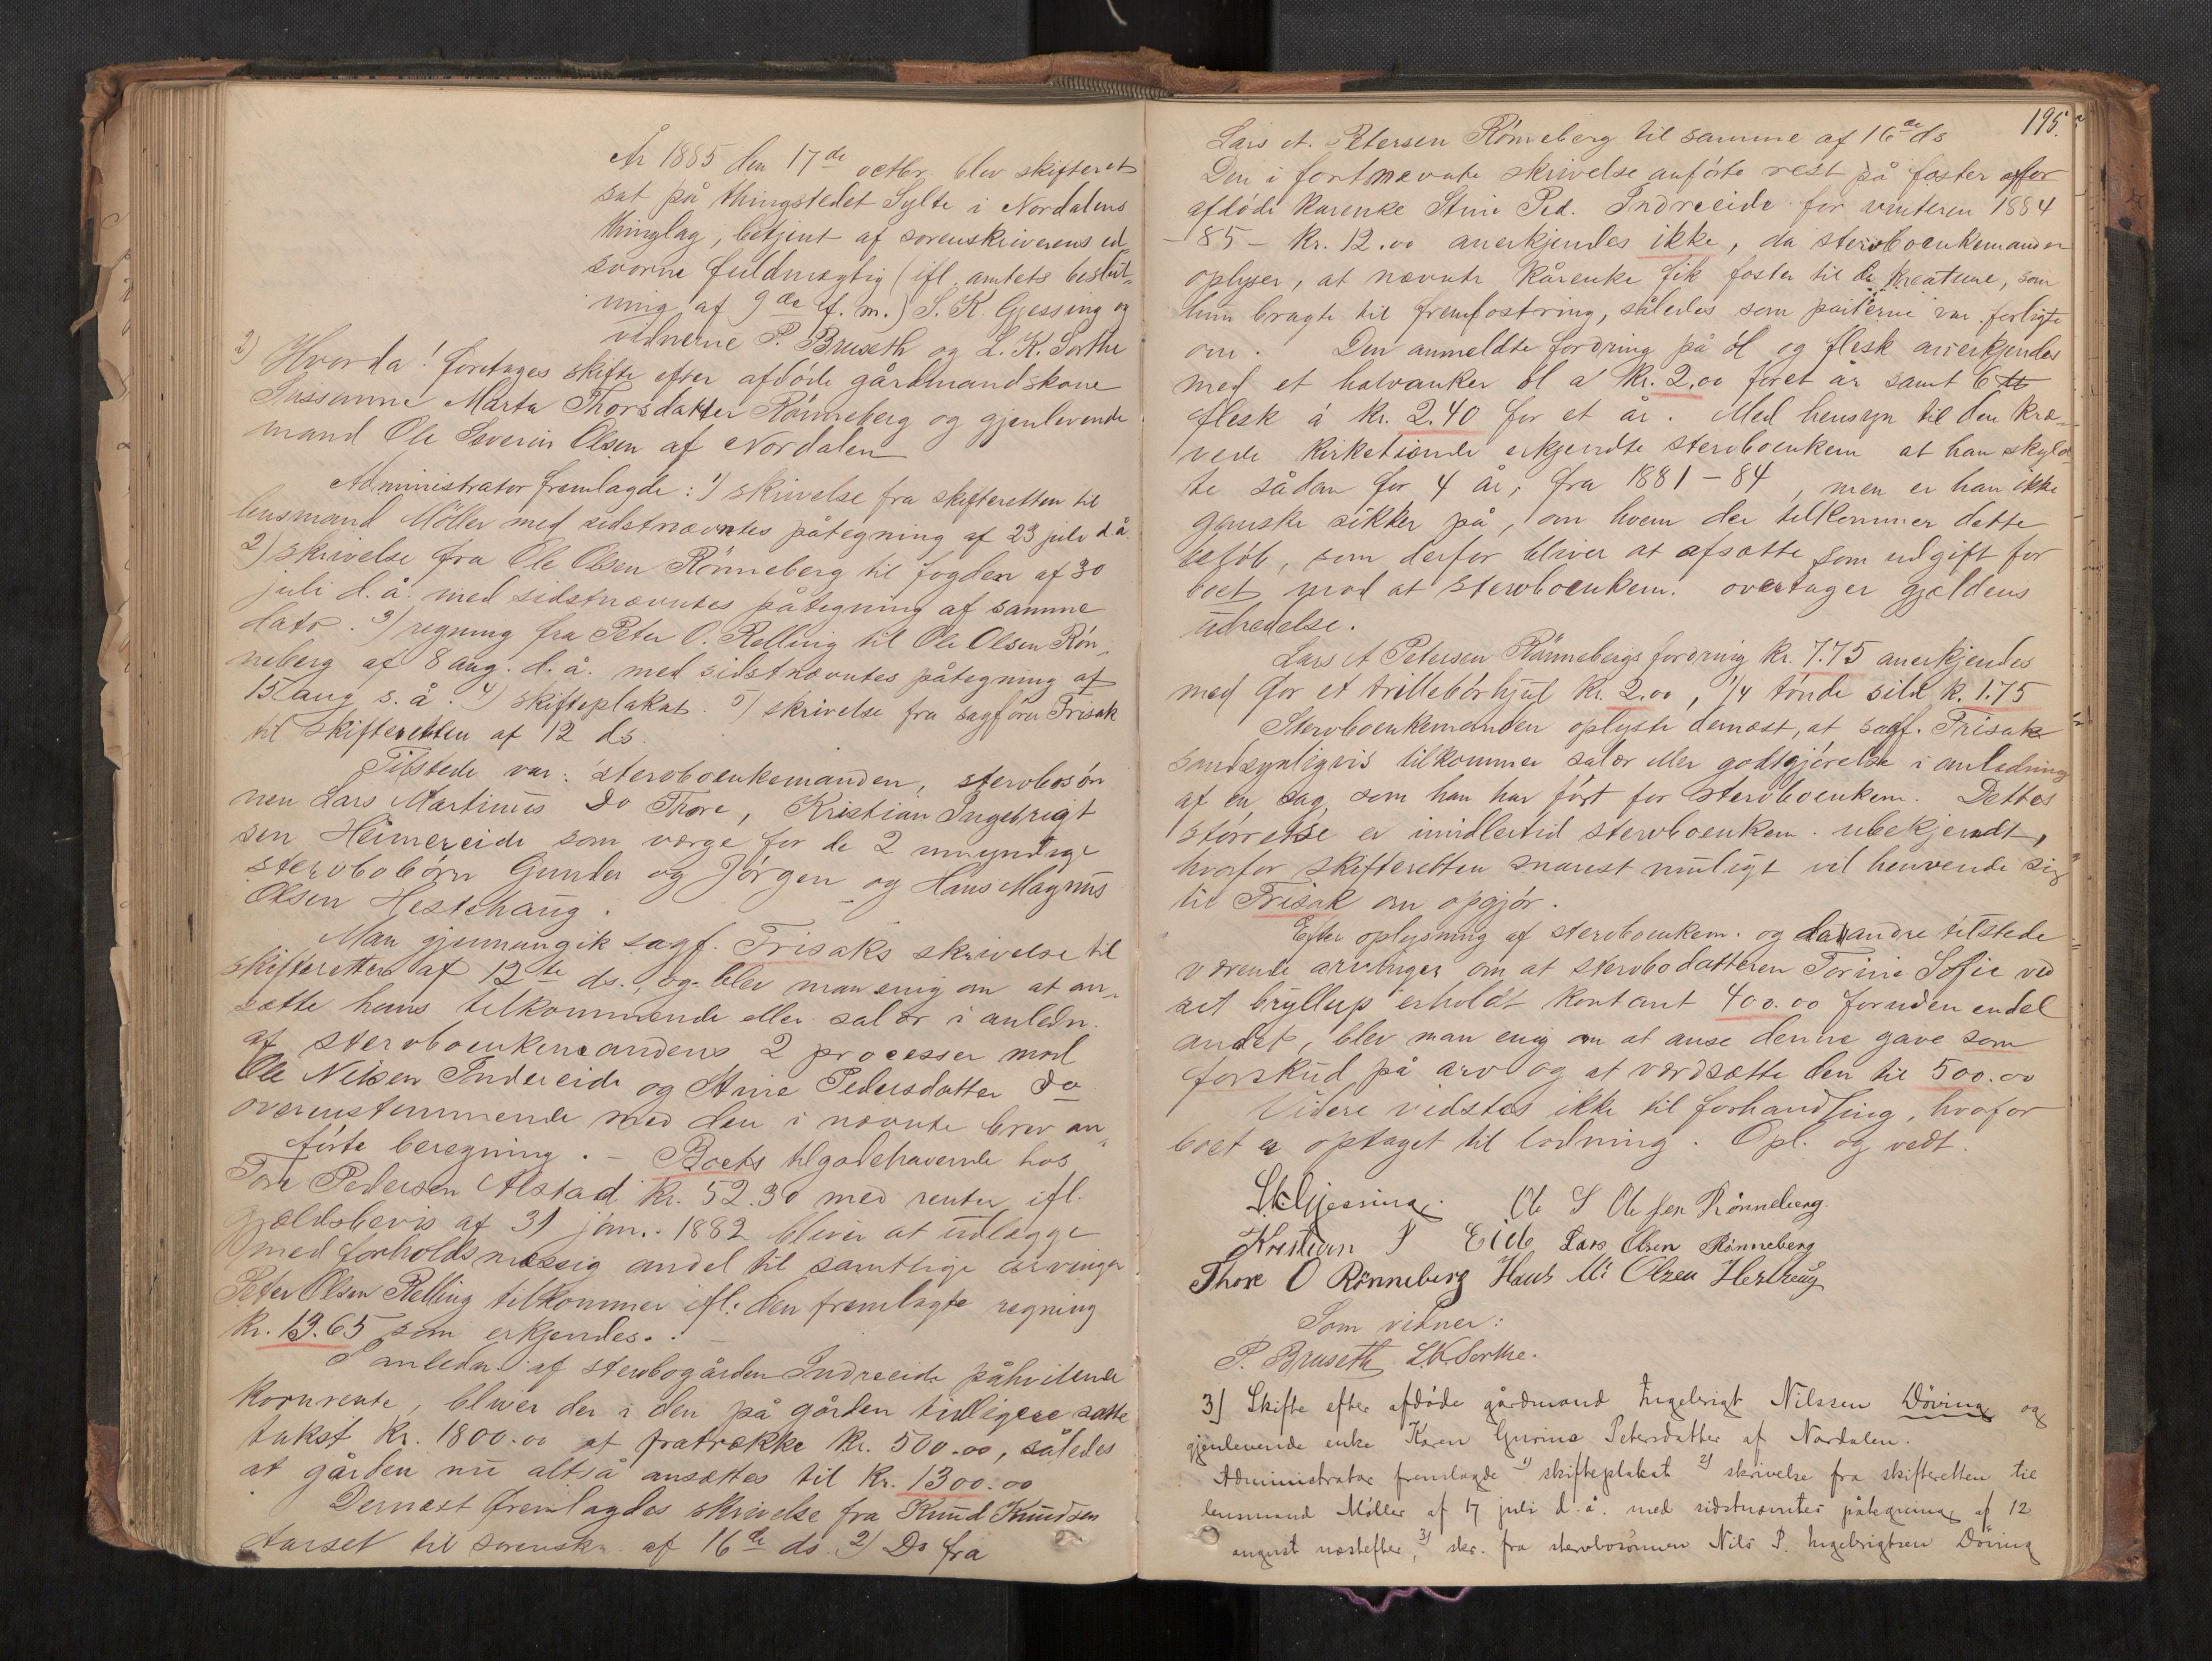 År 1885 den 17de octbr. blev skifteret
sat på thingstedet Sylte i Nordalens
thinglag, betjent af sorenskriverens ed-
svorne fuldmægtig (ifl. amtets beslut-
ning af 9de f. m.) S. K. Gjessing og
vidnerne P. Bruseth og L. K. Sorthe
2) Hvorda! foretages skifte efter afdøde gårdmandskone
Sussanne Marta Thorsdatter Rønneberg og gjenlevende
mand Ole Severin Olsen af Nordalen
Administrator fremlagde: 1) skrivelse fra skifteretten til
lensmand Möller med sidstnævntes påtegning af 23 juli d.å.
2) skrivelse fra Ole Olsen Rønneberg til fogden af 30
juli d. å. med sidstnævntes påtegning af samme
dato. 3) regning fra Peter O. Relling til Ole Olsen Røn-
neberg af 8 aug. d. å. med sidstnævntes påtegning af
15 aug s. å. 4) skifteplakat. 5) skrivelse fra sagfører Frisak
til skifteretten af 12 ds.
Tilstede var: stervboenkemanden, stervbosøn
nen Lars Martinus Do Thore, Kristian Ingebrigt
sen Heimereide som værge for de 2 umyndige
stervbobørn Gunder og Jørgen og Hans Magnus
Olsen Hestehaug.
Man gjennemgik sagf. Frisaks skrivelse til
skifteretten af 12te ds., og blev man enig om at an-
sætte hans tilkommende eller salær i anledn.
af stervboenkemandens 2 processer mod
Ole Nilsen Indreeide og Stine Pedersdatter Do
overenstemmende med den i nævnte brev an-
førte beregning. - Boets tilgodehavende hos
Tore Pedersen Alstad kr. 52.30 med renter ifl.
gjældsbevis af 31 jan. 1882 bliver at udlægge
med forholdsmæssig andel til samtlige arvinger
Peter Olsen Relling tilkommer ifl. den fremlagte regning
kr. 13.65 som erkjendes.
I anledn. af stervbogården Indreeide påhvilende
kornrente, bliver der i den på gården tidligere satte
takst kr. 1800.00 at fratrække kr. 500.00, således
at gården nu altså ansættes til kr. 1300.00
Dernæst fremlagdes skrivelse fra Knud Knudsen
til sorenskr. af 16de ds. 2) Do fra
195.
Lars A. Petersen Rønneberg til samme af 16de ds
Den i førstnævnte skrivelse anførte rest på foster af for
afdøde kårenke Stine Ped. Indreeide for vinteren 1884
-85 - kr. 12.00 anerkjendes ikke, da stervboenkemanden
oplyser, at nævnte kårenke fik foster til de kreature, som
hun bragte til fremfostring, således som parterne var forligte
om. Den anmeldte fordring på øl og flesk anerkjendes
med et halvanker øl a kr. 2.00 for et år samt 6 ℔
flesk á kr. 2.40 for et år. Med hensyn til den kræ-
vede kirketiende erkjendte stervboenkem at han skyld-
te sådan for 4 år, fra 1881-84, men er han ikke
ganske sikker på, om hvem der tilkommer dette
beløb, som derfor bliver at afsætte som udgift for
boet mod at stervboenkem. overtager gjældens
udredelse.
Lars A Petersen Rønnebergs fordring kr. 7.75 anerkjendes
med for et trillebørhjul kr. 2.00, 1/4 tønde sild k. 1.75
Stervboenkemanden oplyste dernæst, at sagf. Frisak
sandsynligvis tilkommer salær eller godtgjørelse i anledning
af en sag som han har ført for stervboenkem. Dettes
størrelse er imidlertid stervboenkem. ubekjendt,
hvorfor skifteretten snarest muligt vil henvende sig
til Frisak om opgjør.
Efter oplysning af stervboenkem. og de andre tilstede
værende arvinger om at stervbodatteren Torine Sofie ved
sit bryllup erholdt kontant 400.00 foruden endel
andet, blev man enig om at anse denne gave som
forskud på arv og at værdsætte den til 500.00
Videre vidstes ikke til forhandling, hvorfor
boet er optaget til lodning. Opl. og vedt.
S.K.Gjessing. Ole S Olsen Rønneberg.
Kristian I Eide Lars Olsen Rønneberg
Thore O Rønneberg Hans M: Olsen Hesthaug
Som vidner:
P. Bruseth L.K.Sorthe.
3) Skifte efter afdøde gårdmand Ingebrigt Nilssen Døving og
gjenlevende enke Karen Gurine Petersdatter af Nordalen.
Administrator fremlagde 1) skifteplakat 2) skrivelse fra skifteretten til
lensmand Møller af 17 juli d. å. med sidstnævntes påtegning af 12
august næstefter, 3) skr. fra stervbosønnen Nils P. Ingebrigtsen Døving